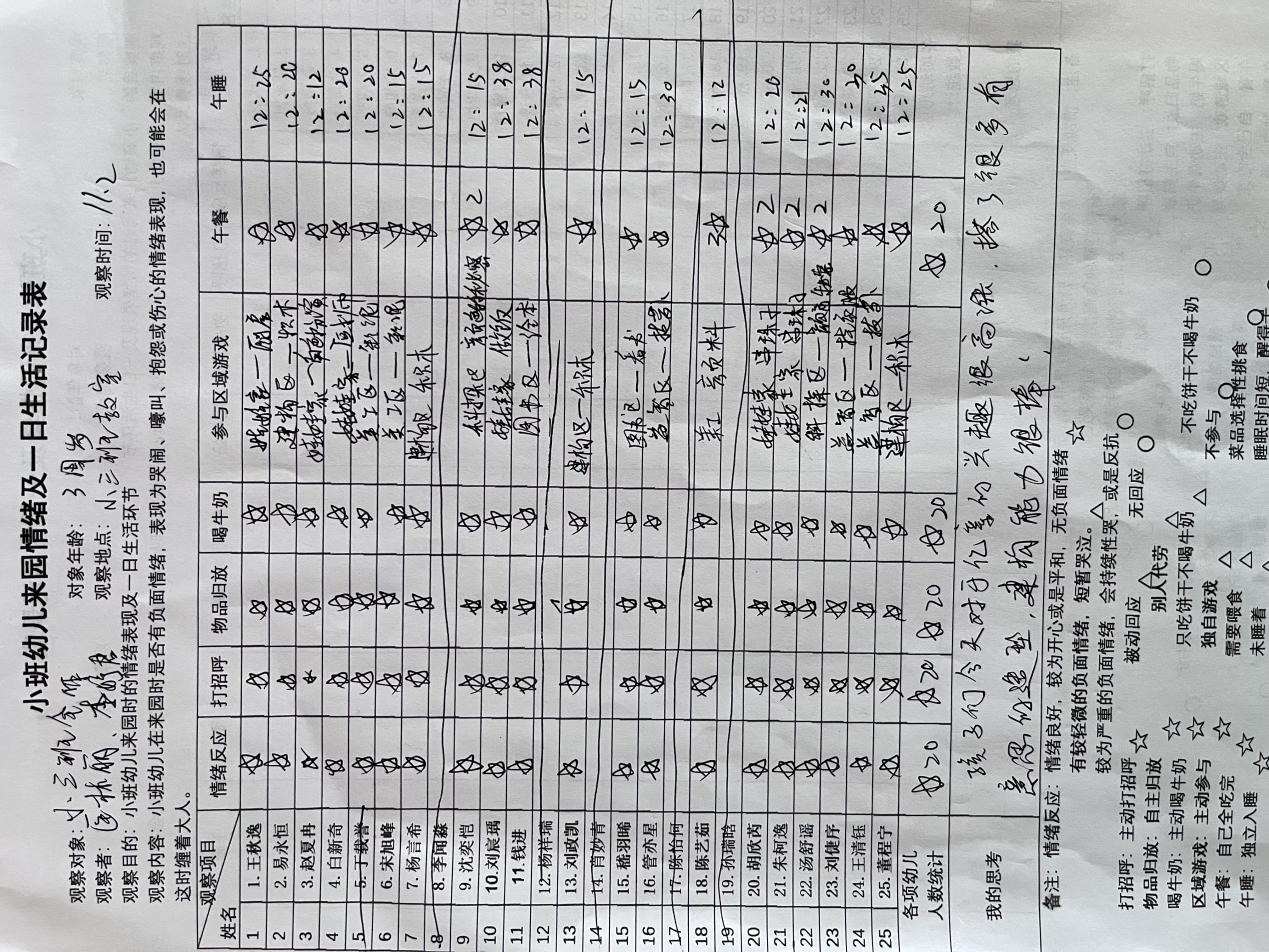 小班幼儿来园情绪及一日生活记录表
观察对象：小三班全体 对象年龄：3周岁 观察时间：11.2
观察者： 观察地点：小三班教室
观察目的：小班幼儿来园时的情绪表现及一日生活环节
观察内容：小班幼儿在来园时是否有负面情绪，表现为哭闹、嚎叫、抱怨或伤心的情绪表现，也可能会在
这时缠着大人。
姓名 观察项目 情绪反应 打招呼 物品归放 喝牛奶 参与区域游戏 午餐 午睡
1 1.王秋逸 ☆ ☆ ☆ ☆ ☆ 12:25
2 2.易永恒 ☆ ☆ ☆ ☆ 建构区—积木 ☆ 12:20
3 3.赵夏冉 ☆ ☆ ☆ ☆ ☆ 12:12
4 4.白新奇 ☆ ☆ ☆ ☆ ☆ 12:20
5 5.丁载誉 ☆ ☆ ☆ ☆ 美工区—彩泥 ☆ 12:20
6 6.宋旭峰 ☆ ☆ ☆ ☆ 美工区—彩泥 ☆ 12:15
7 7.杨言希 ☆ ☆ ☆ ☆ 建构区 积木 ☆ 12:15
8 8.李闻淼
9 9.沈奕恺 ☆ ☆ ☆ ☆ 科探区 ☆2 12:15
10 10.刘宸瑀 ☆ ☆ ☆ ☆ 娃娃家 做饭 ☆ 12:38
11 11.钱进 ☆ ☆ ☆ ☆ 图书区—绘本 ☆ 12:38
12 12.杨祥瑞
13 13.刘政凯 ☆ ☆ ☆ ☆ 建构区—积木 ☆ 12:15
14 14.肖妙青
15 15.嵇羽晞 ☆ ☆ ☆ ☆ 图书区—看书 ☆ 12:15
16 16.管亦星 ☆ ☆ ☆ ☆ 益智区— ☆ 12:30
17 17.陈怡何
18 18.陈艺茹 ☆ ☆ ☆ ☆ 美工 ☆ 12:12
19 19.孙瑞晗
20 20.胡欣芮 ☆ ☆ ☆ ☆ 娃娃家 串珠子 ☆2 12:20
21 21.朱柯逸 ☆ ☆ ☆ ☆ 娃娃家 串珠子 ☆2 12:21
22 22.汤舒谣 ☆ ☆ ☆ ☆ 科探区— ☆2 12:30
23 23.刘倢序 ☆ ☆ ☆ ☆ 益智区— ☆ 12:20
24 24.王清钰 ☆ ☆ ☆ ☆ 益智区— ☆ 12:25
25 25.董程宁 ☆ ☆ ☆ ☆ 建构区—积木 ☆ 12:25
各项幼儿
人数统计 ☆20 ☆20 ☆20 ☆20 ☆20
我的思考 孩子们今天对于亿童的兴趣很高涨，搭了很多有
意思的造型，建构能力很棒！
备注：情绪反应：情绪良好，较为开心或是平和，无负面情绪 ☆
有较轻微的负面情绪，短暂哭泣。△
较为严重的负面情绪，会持续性哭，或是反抗 ○
打招呼：主动打招呼 ☆ 被动回应 △ 无回应 ○
物品归放：自主归放 ☆ 别人代劳
喝牛奶：主动喝牛奶 ☆ 只吃饼干不喝牛奶 △ 不吃饼干不喝牛奶 ○
区域游戏：主动参与 ☆ 独自游戏 △ 不参与 ○
午餐：自己全吃完 ☆ 需要喂食 △ 菜品选择性挑食 ○
午睡：独立入睡 ☆ 未睡着 △ 睡眠时间短，醒得早